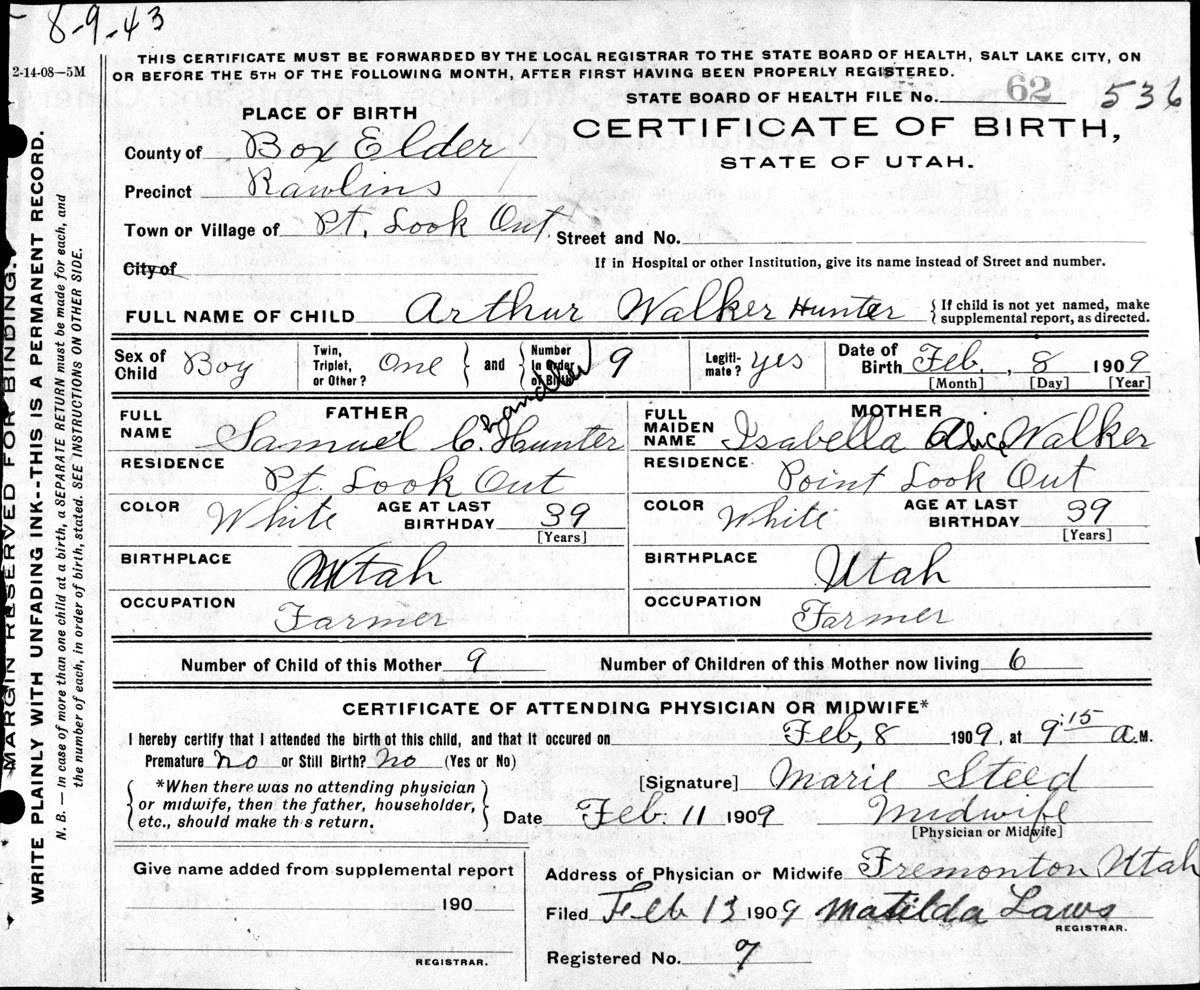 8-9-43
2-14-08—5M
THIS CERTIFICATE MUST BE FORWARDED BY THE LOCAL REGISTRAR TO THE STATE BOARD OF HEALTH, SALT LAKE CITY, ON
OR BEFORE THE 5TH OF THE FOLLOWING MONTH, AFTER FIRST HAVING BEEN PROPERLY REGISTERED.
STATE BOARD OF HEALTH FILE No. 62 536
PLACE OF BIRTH
CERTIFICATE OF BIRTH,
STATE OF UTAH.
County of Box Elder
Precinct Rawlins
Town or Village of Pt. Look Out
Street and No.
City of
If in Hospital or other Institution, give its name instead of Street and number.
FULL NAME OF CHILD Arthur Walker Hunter {If child is not yet named, make
supplemental report, as directed.
Sex of Child Boy
Twin, Triplet, or Other? One } and { Number In Order of Birth 9
Legiti-mate? yes
Date of Birth Feb. , 8 1909
[Month] [Day] [Year]
FATHER
FULL NAME Samuel C. Hunter
RESIDENCE Pt. Look Out
COLOR White AGE AT LAST BIRTHDAY 39
[Years]
BIRTHPLACE Utah
OCCUPATION Farmer
MOTHER
FULL MAIDEN NAME Isabella Alice Walker
RESIDENCE Point Look Out
COLOR White AGE AT LAST BIRTHDAY 39
[Years]
BIRTHPLACE Utah
OCCUPATION Farmer
Number of Child of this Mother 9 Number of Children of this Mother now living 6
CERTIFICATE OF ATTENDING PHYSICIAN OR MIDWIFE*
I hereby certify that I attended the birth of this child, and that it occured on Feb, 8 1909, at 9:15 a.M.
Premature no or Still Birth? no (Yes or No)
*When there was no attending physician
or midwife, then the father, householder,
etc., should make this return.
[Signature] Marie Steed
Date Feb. 11 1909 Midwife
[Physician or Midwife]
Give name added from supplemental report
190
REGISTRAR.
Address of Physician or Midwife Fremonton Utah
Filed Feb 13 1909 Matilda Laws
REGISTRAR.
Registered No. 9
MARGIN RESERVED FOR BINDING.
WRITE PLAINLY WITH UNFADING INK--THIS IS A PERMANENT RECORD.
N. B. — In case of more than one child at a birth, a SEPARATE RETURN must be made for each, and
the number of each, in order of birth, stated. SEE INSTRUCTIONS ON OTHER SIDE.